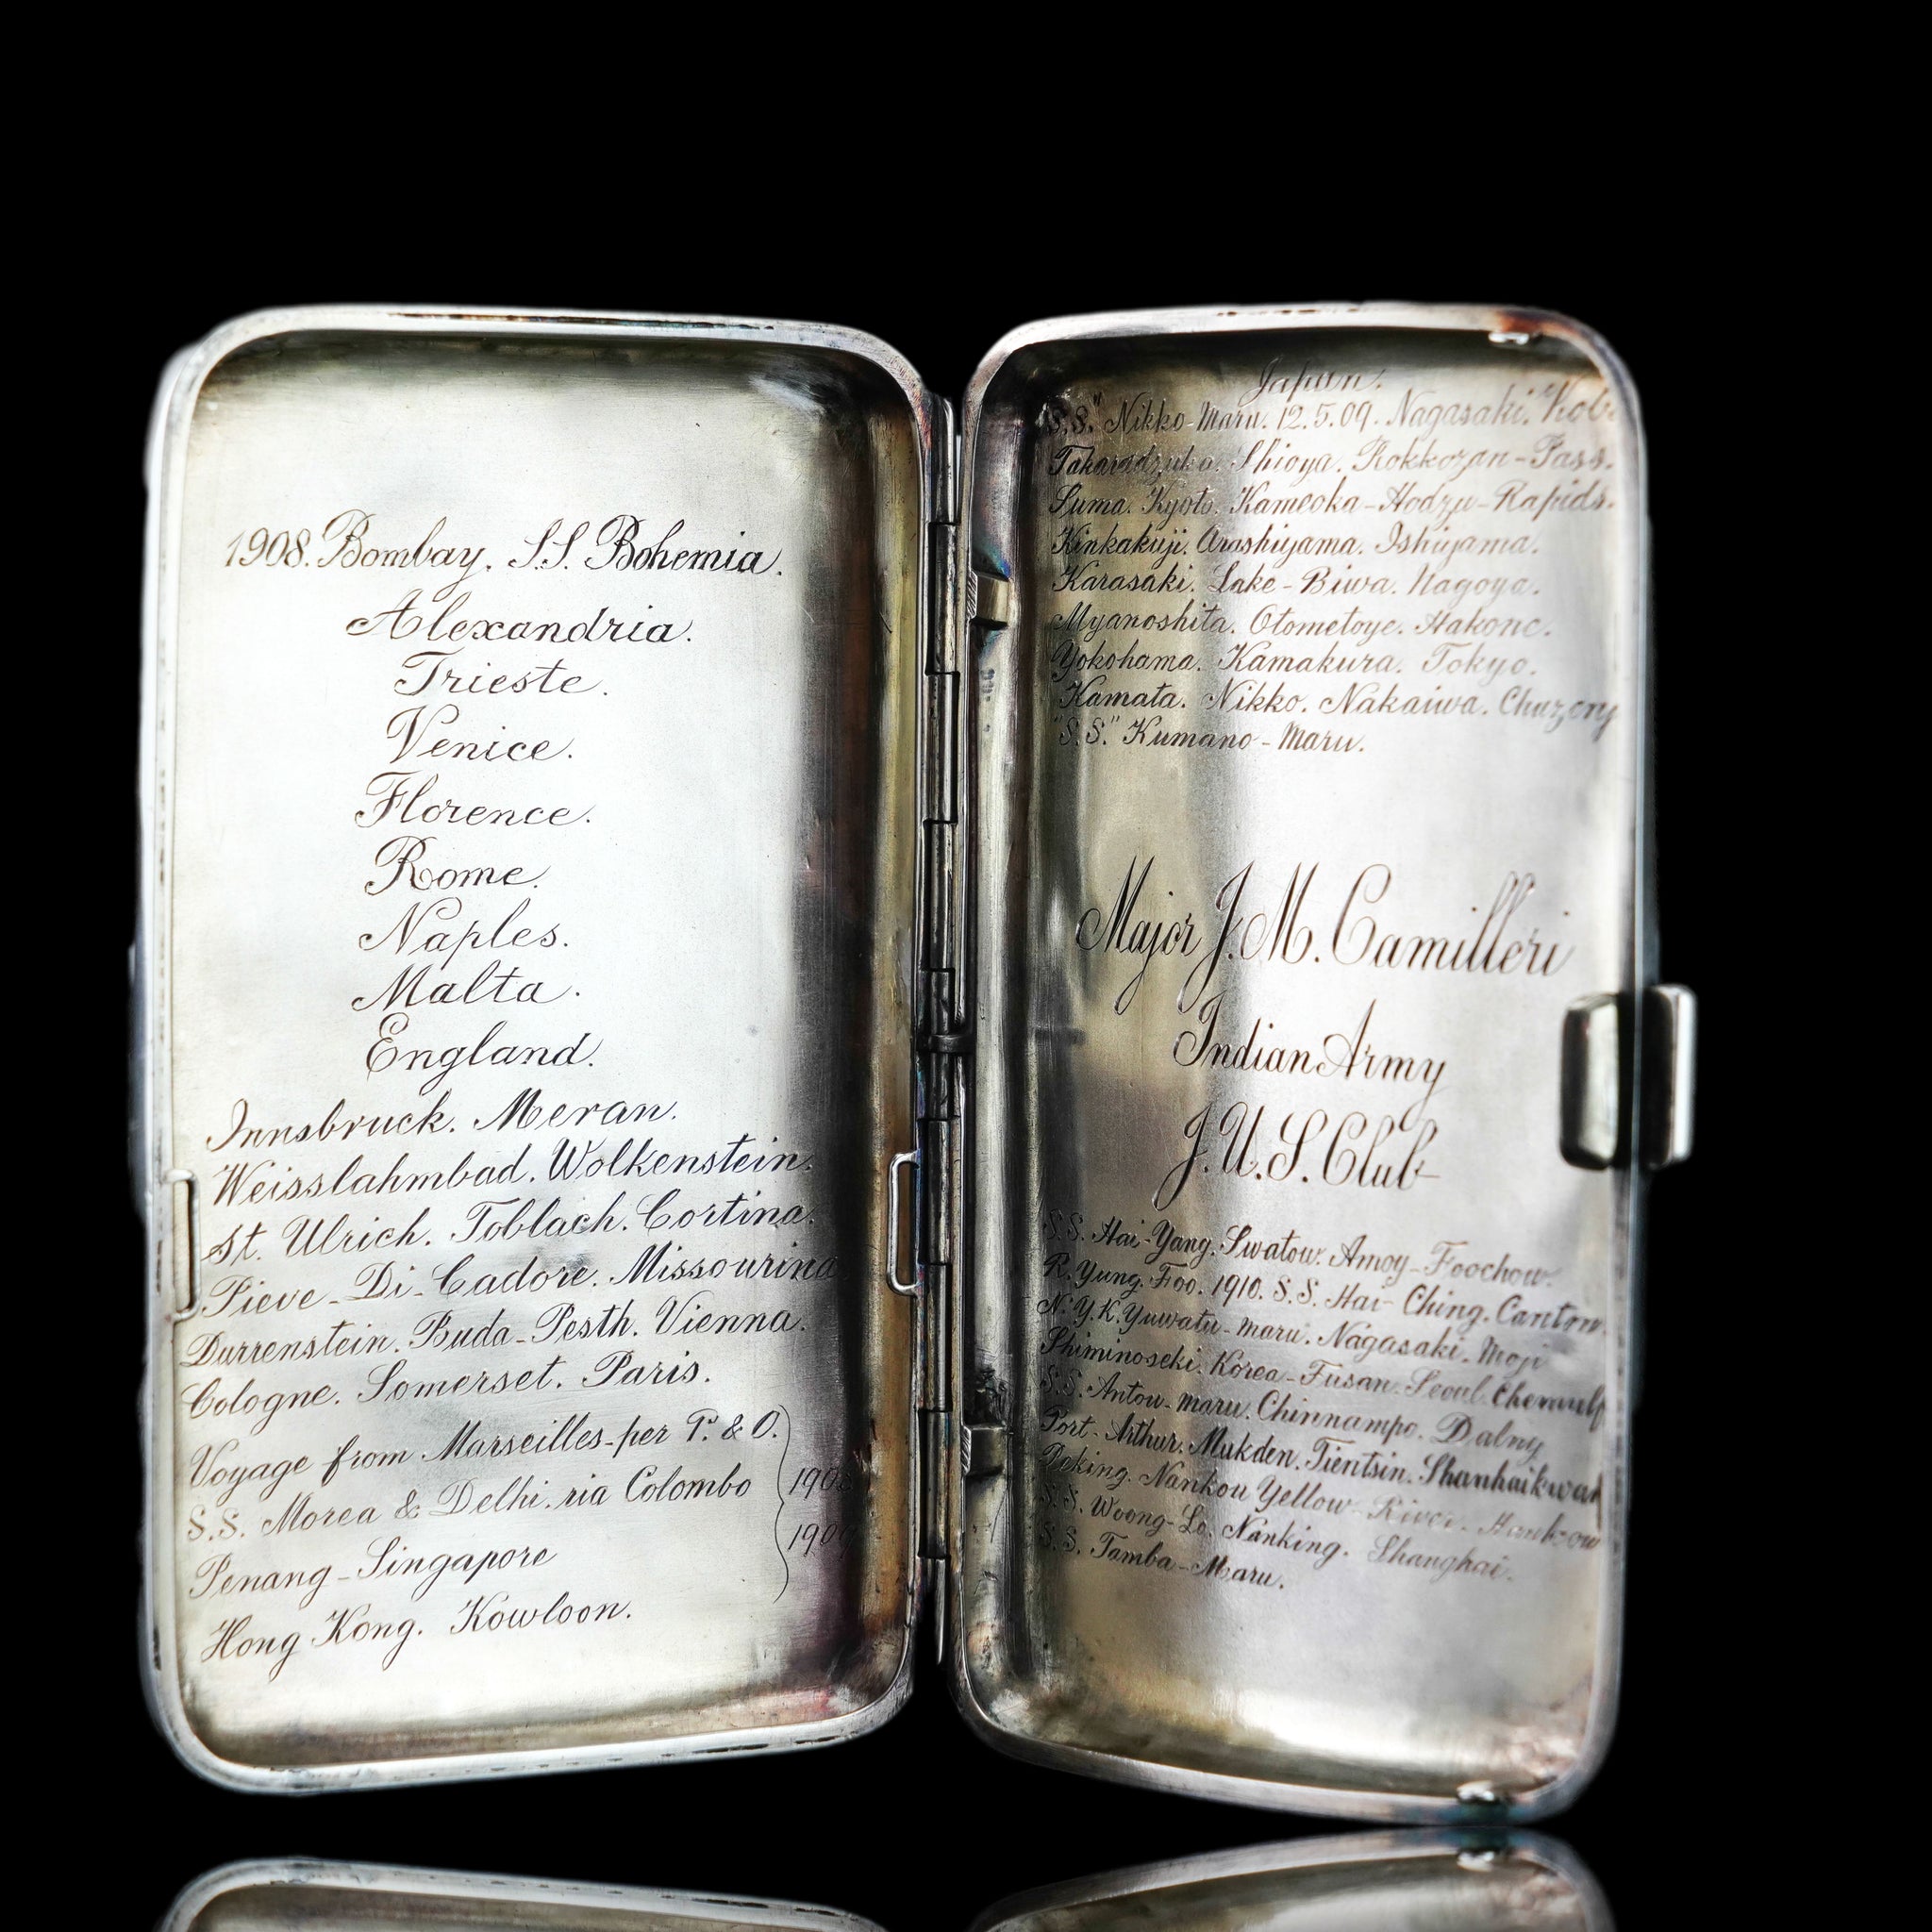 1908. Bombay. S.S. Bohemia.
Alexandria.
Trieste.
Venice.
Florence.
Rome.
Naples.
Malta.
England.
Innsbruck. Meran.
Weisslahmbad. Wolkenstein.
St. Ulrich. Toblach. Cortina.
Pieve-Di-Cadore. Missourina
Durrenstein. Buda-Pesth. Vienna.
Cologne. Somerset. Paris.
Voyage from Marseilles-per P. & O.
S.S. Morea & Delhi. via Colombo
1908
1909
Penang-Singapore
Hong Kong. Kowloon.
Japan.
"S.S." Nikko-Maru. 12.5.09. Nagasaki.
Takaradzuka. Shioya. Rokkozan-Pass.
Suma. Kyoto. Kameoka-Hodzu-Rapids.
Kinkakuji. Arashiyama. Ishiyama.
Karasaki. Lake-Biwa. Nagoya.
Myanoshita. Otometoye. Hakone.
Yokohama. Kamakura. Tokyo.
Kamata. Nikko. Nakaiwa.
"S.S." Kumano-Maru.
Major J. M. Camilleri
Indian Army
J.U.S. Club
S.S. Hai-Yang. Swatow. Amoy-Foochow.
R. Yung. Foo. 1910. S.S. Hai-Ching. Canton.
N.Y.K. Yuwatu-maru. Nagasaki. Moji
Shiminoseki. Korea-Fusan. Seoul.
S.S. Antou-maru. Chinnampo. Dalny
Port-Arthur. Mukden. Tientsin. Shanhaikwan
Peking. Nankou Yellow-River. Hankow
S.S. Woong-Lo. Nanking. Shanghai.
S.S. Tamba-Maru.